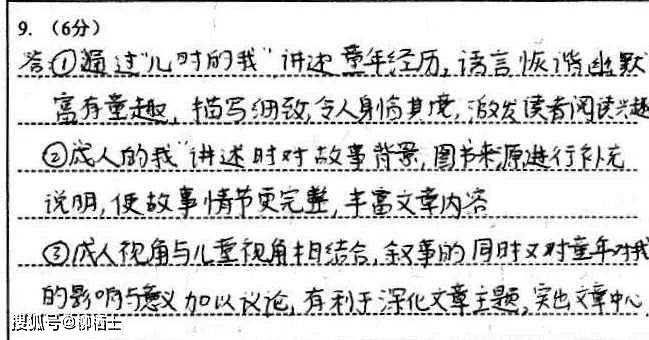 9. (6分)
答①通过"儿时的我"讲述童年经历,语言恢谐幽默
富有童趣,描写细致,令人身临其境,激发读者阅读兴趣
②成人的我"讲述时对故事背景,图书来源进行补充
说明,使故事情节更完整,丰富文章内容
③成人视角与儿童视角相结合,叙事的同时又对童年对我
的影响与意义加以议论,有利于深化文章主题,突出文章中心.
搜狐号@柳栖士